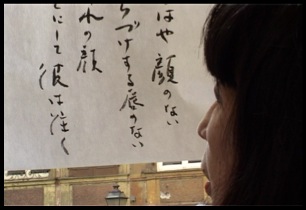 はや 顔のない
らづけする唇のない
れの顔
とにして 彼は泣く